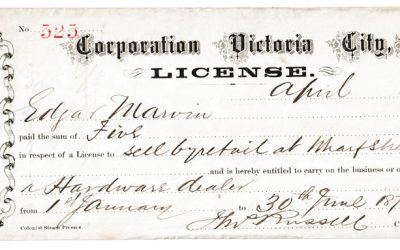 No. 525
Corporation Victoria City,
LICENSE.
April
Edgar Marvin
paid the sum of Five
in respect of a License to sell by retail at Wharf Stre
and is hereby entitled to carry on the business or o
a Hardware dealer
from 1st January to 30th June 18
Jno. Russell C
Colonist Steam Presses.